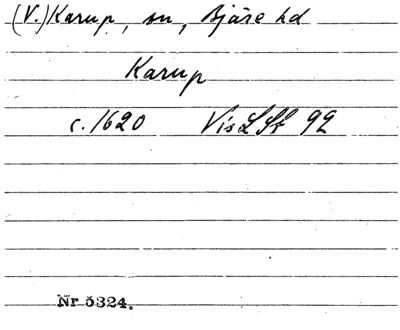 (V.) Karup, sn, Bjäre hd
Karup
c. 1620 VisLSt 92
Nr 5324.